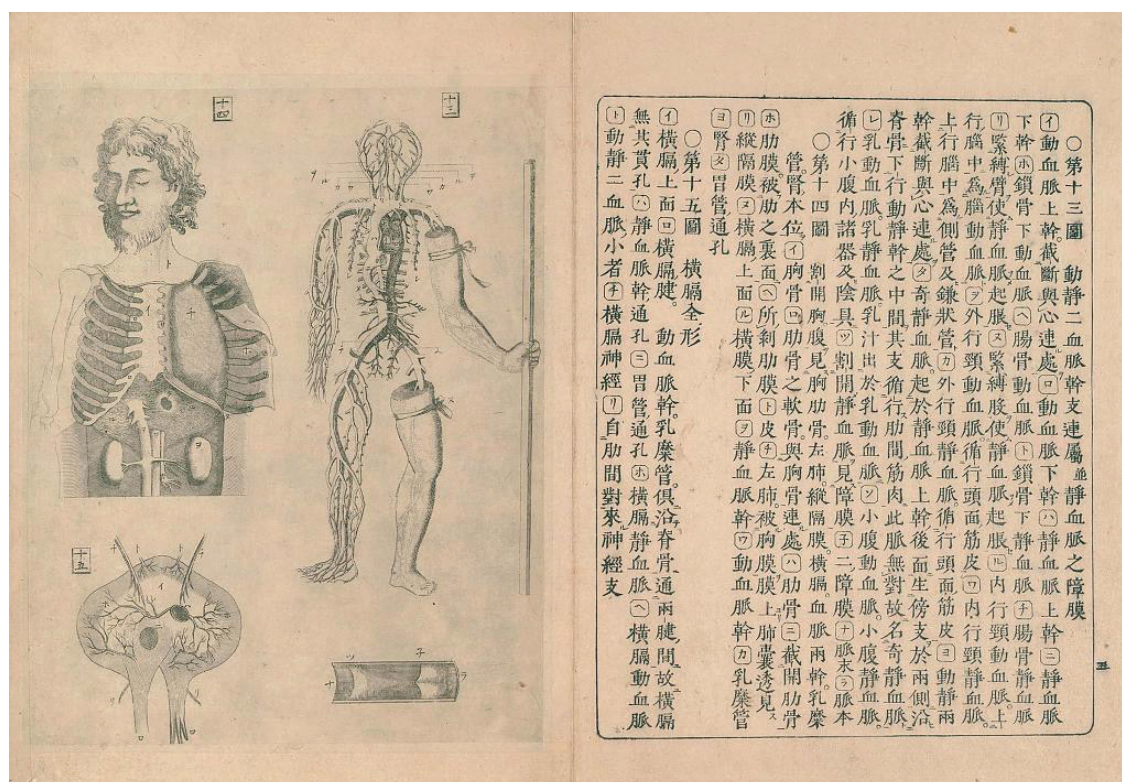 ○第十三圖 動靜二血脈幹支連屬並靜血脈之障膜
㋑動血脈上幹。截斷與心連處㋺動血脈下幹㋩靜血脈上幹㋥靜血脈
下幹㋭鎖骨下動血脈㋬腸骨動血脈㋣鎖骨下靜血脈㋠腸骨靜血脈
㋷緊縛臂使靜血脈起脹㋦緊縛股使靜血脈起脹㋸內行頸動血脈。上
行腦中爲腦動血脈㋾外行頸動血脈。循行頭面筋皮㋻內行頸靜血脈。
上行腦中爲側管及鎌狀管㋕外行頸靜血脈。循行頭面筋皮㋵動靜兩
幹截斷與心連處㋟奇靜血脈。起於靜血脈上幹後面生傍支於兩側沿
脊骨下行動靜幹之中間其支循行肋間筋肉此脈無對故名奇靜血脈
㋹乳動血脈。乳靜血脈。乳汁出於乳動血脈㋞小腹動血脈。小腹靜血脈。
循行小腹內諸器及陰具㋡割開靜血脈見障膜㋧二障膜㋤脈末㋶脈本
○第十四圖 割開胸腹見胸肋骨。左肺。縱隔膜。橫膈。血脈兩幹。乳糜
管。腎本位。㋑胸骨㋺肋骨之軟骨與胸骨連處㋩肋骨㋥截開肋骨
㋭肋膜被肋之裏面㋬所剝肋膜㋣皮㋠左肺。被胸膜膜上肺囊透見
㋷縱隔膜㋦橫膈上面㋸橫膜下面㋾靜血脈幹㋻動血脈幹㋕乳糜管
㋵腎㋟胃管通孔
○第十五圖 橫膈全形
㋑橫膈上面㋺橫膈腱。動血脈幹。乳糜管。俱沿脊骨通兩腱間故橫膈
無其貫孔㋩靜血脈幹通孔㋥胃管通孔㋭橫膈靜血脈㋬橫膈動血脈
㋣動靜二血脈小者㋠橫膈神經㋷自肋間對來神經支
十三
十四
十五